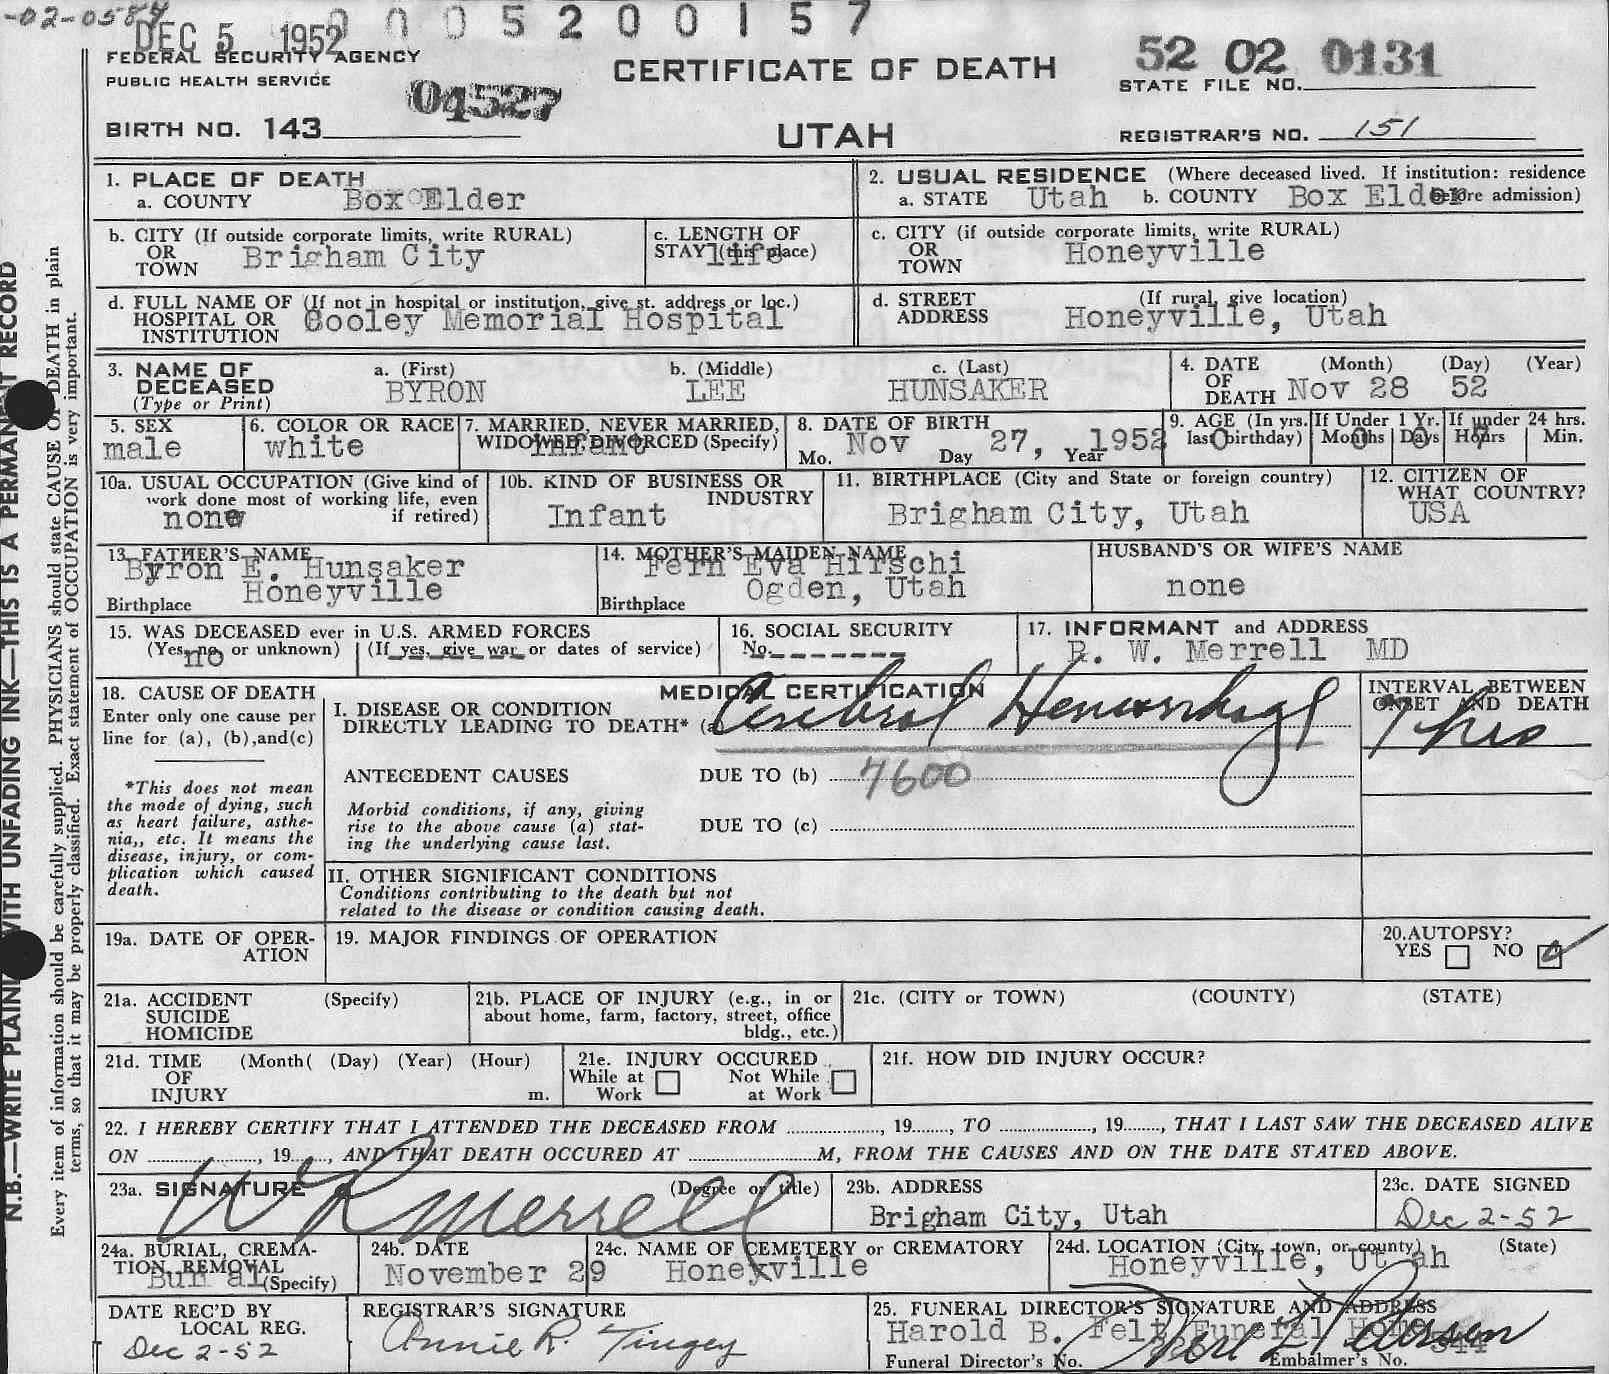 -02-0584
DEC 5 1952
0005200157
FEDERAL SECURITY AGENCY
PUBLIC HEALTH SERVICE
04527
BIRTH NO. 143
CERTIFICATE OF DEATH
UTAH
52 02 0131
STATE FILE NO.
REGISTRAR'S NO. 151
1. PLACE OF DEATH
a. COUNTY Box Elder
2. USUAL RESIDENCE (Where deceased lived. If institution: residence before admission)
a. STATE Utah b. COUNTY Box Elder
b. CITY (If outside corporate limits, write RURAL)
OR
TOWN Brigham City
c. LENGTH OF
STAY (this place) life
c. CITY (if outside corporate limits, write RURAL)
OR
TOWN Honeyville
d. FULL NAME OF (If not in hospital or institution, give st. address or loc.)
HOSPITAL OR
INSTITUTION Cooley Memorial Hospital
d. STREET (If rural, give location)
ADDRESS Honeyville, Utah
3. NAME OF
DECEASED
(Type or Print)
a. (First) b. (Middle) c. (Last)
BYRON LEE HUNSAKER
4. DATE (Month) (Day) (Year)
OF
DEATH Nov 28 52
5. SEX
male
6. COLOR OR RACE
white
7. MARRIED, NEVER MARRIED,
WIDOWED, DIVORCED (Specify)
infant
8. DATE OF BIRTH
Mo. Nov Day 27, Year 1952
9. AGE (In yrs. last birthday) 0
If Under 1 Yr. Months 0 Days 0
If under 24 hrs. Hours 7 Min.
10a. USUAL OCCUPATION (Give kind of
work done most of working life, even
if retired)
none
10b. KIND OF BUSINESS OR
INDUSTRY
Infant
11. BIRTHPLACE (City and State or foreign country)
Brigham City, Utah
12. CITIZEN OF
WHAT COUNTRY?
USA
13. FATHER'S NAME
Byron E. Hunsaker
Honeyville
Birthplace
14. MOTHER'S MAIDEN NAME
Fern Eva Hirschi
Ogden, Utah
Birthplace
HUSBAND'S OR WIFE'S NAME
none
15. WAS DECEASED ever in U.S. ARMED FORCES
(Yes, no, or unknown) (If yes, give war or dates of service)
no
16. SOCIAL SECURITY
No.
17. INFORMANT and ADDRESS
R. W. Merrell MD
18. CAUSE OF DEATH
Enter only one cause per
line for (a), (b),and(c)
*This does not mean
the mode of dying, such
as heart failure, asthe-
nia,, etc. It means the
disease, injury, or com-
plication which caused
death.
MEDICAL CERTIFICATION
I. DISEASE OR CONDITION
DIRECTLY LEADING TO DEATH* (a) Cerebral Hemorrhage
ANTECEDENT CAUSES DUE TO (b) 7600
Morbid conditions, if any, giving
rise to the above cause (a) stat-
ing the underlying cause last.
DUE TO (c)
II. OTHER SIGNIFICANT CONDITIONS
Conditions contributing to the death but not
related to the disease or condition causing death.
INTERVAL BETWEEN
ONSET AND DEATH
7 hrs
19a. DATE OF OPER-
ATION
19. MAJOR FINDINGS OF OPERATION
20. AUTOPSY?
YES NO ✓
21a. ACCIDENT (Specify)
SUICIDE
HOMICIDE
21b. PLACE OF INJURY (e.g., in or
about home, farm, factory, street, office
bldg., etc.)
21c. (CITY or TOWN) (COUNTY) (STATE)
21d. TIME (Month( (Day) (Year) (Hour)
OF
INJURY m.
21e. INJURY OCCURED
While at Work Not While at Work
21f. HOW DID INJURY OCCUR?
22. I HEREBY CERTIFY THAT I ATTENDED THE DECEASED FROM ................, 19......, TO ................, 19......, THAT I LAST SAW THE DECEASED ALIVE
ON ..................., 19......, AND THAT DEATH OCCURED AT .....................M, FROM THE CAUSES AND ON THE DATE STATED ABOVE.
23a. SIGNATURE (Degree or title)
W R Merrell
23b. ADDRESS
Brigham City, Utah
23c. DATE SIGNED
Dec 2-52
24a. BURIAL, CREMA-
TION, REMOVAL
(Specify)
Burial
24b. DATE
November 29
24c. NAME OF CEMETERY or CREMATORY
Honeyville
24d. LOCATION (City, town, or county) (State)
Honeyville, Utah
DATE REC'D BY
LOCAL REG.
Dec 2-52
REGISTRAR'S SIGNATURE
Annie R. Tingey
25. FUNERAL DIRECTOR'S SIGNATURE AND ADDRESS
Harold B. Felt Funeral Home
Petersen
Funeral Director's No. Embalmer's No. 344
N.B.—WRITE PLAINLY WITH UNFADING INK—THIS IS A PERMANENT RECORD
Every item of information should be carefully supplied. PHYSICIANS should state CAUSE OF DEATH in plain
terms, so that it may be properly classified. Exact statement of OCCUPATION is very important.